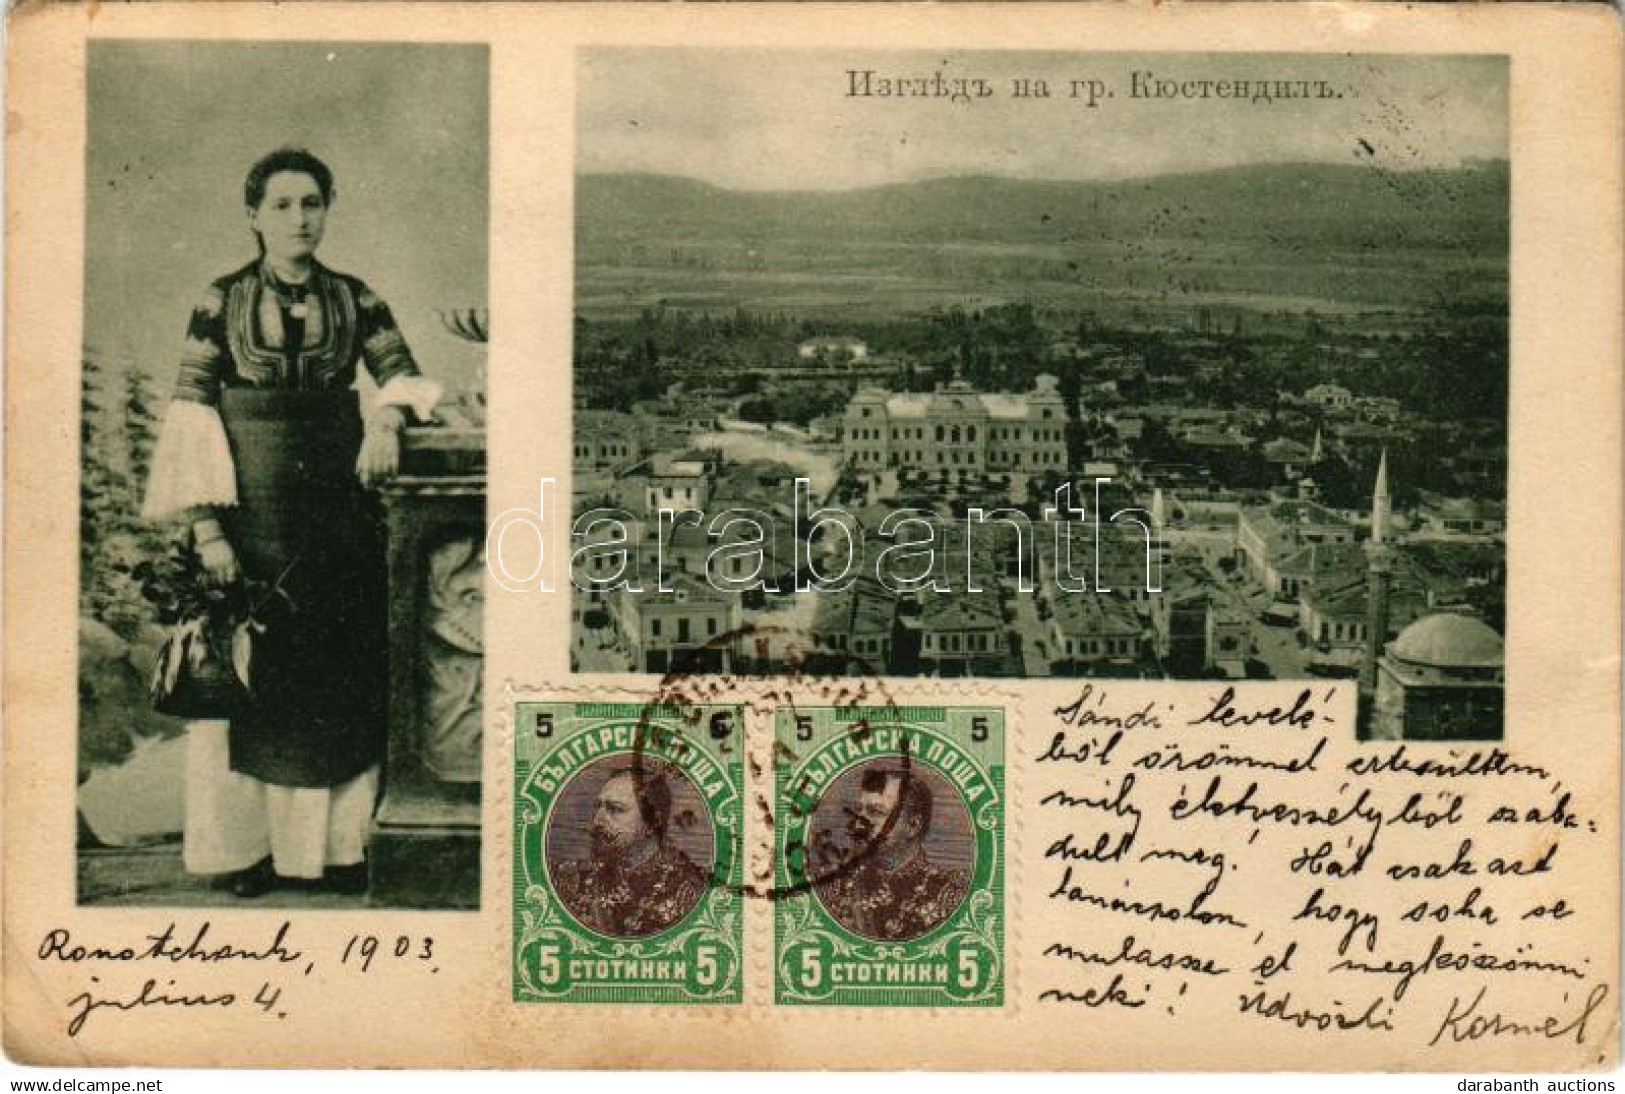 Изглѣдъ на гр. Кюстендилъ.
darabanth
5 5
БЪЛГАРСКА ПОЩА
5 СТОТИНКИ 5
5 5
БЪЛГАРСКА ПОЩА
5 СТОТИНКИ 5
Sándi levelé-
ből örömmel értesültem,
mily életveszélyből szaba-
dult meg! Hát csak azt
tanácsolom, hogy soha se
mulassza el megköszönni
neki! Üdvözli Kornél.
1903.
július 4.
darabanth auctions